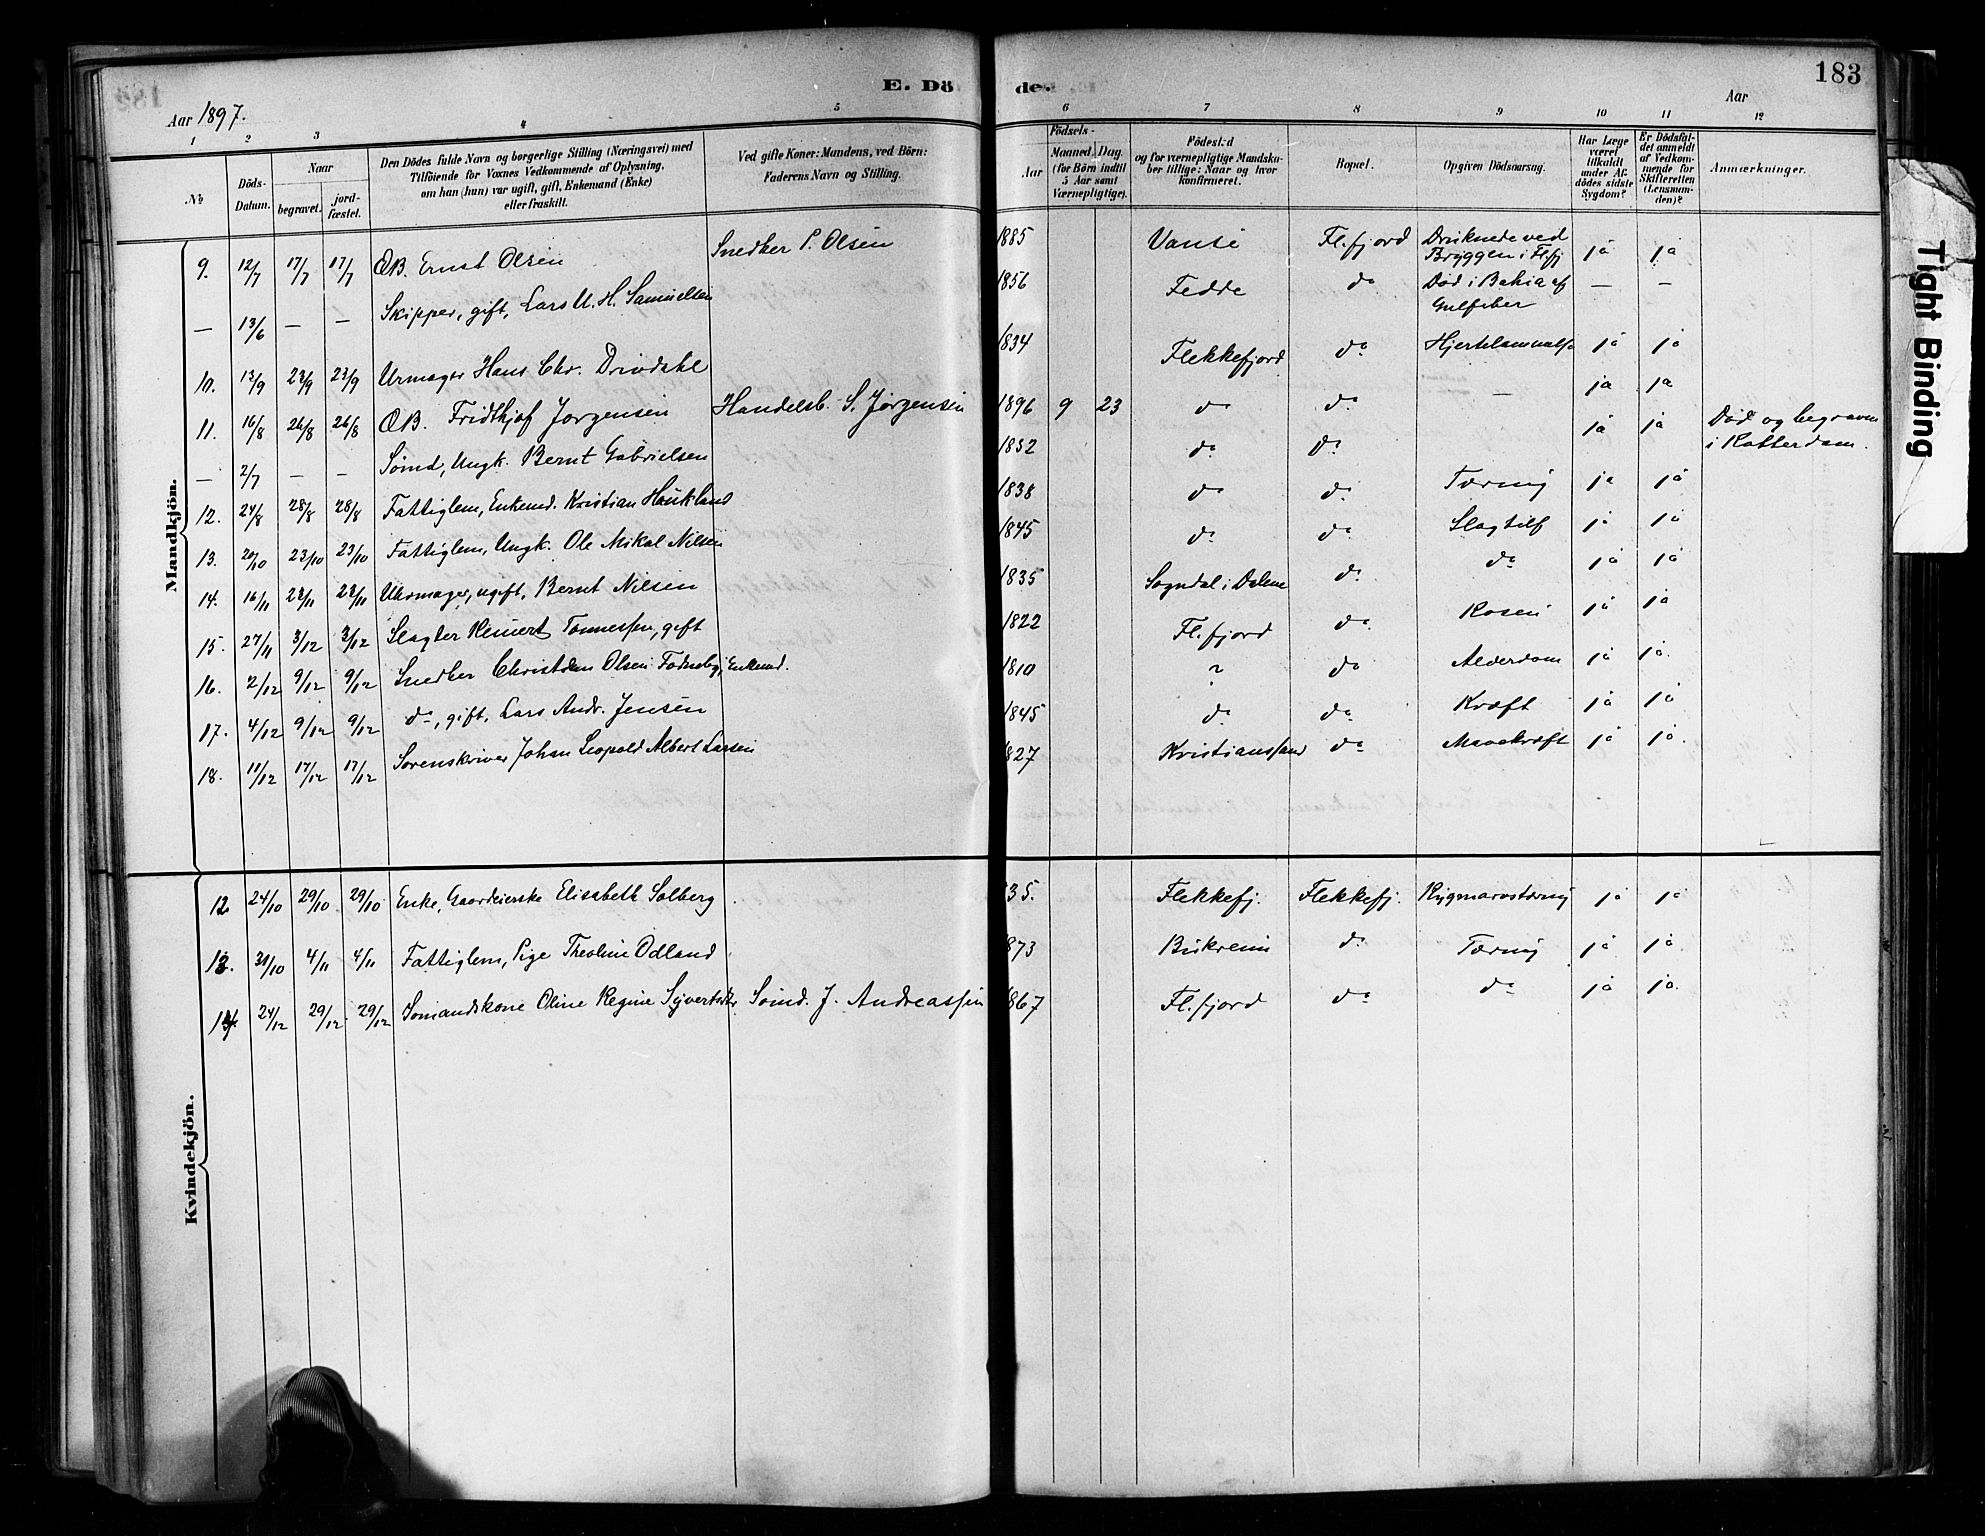 183
E. Döde.
Aar 1897.
Aar
1 2 3 4 5 6 7 8 9 10 11 12
№
Döds-Datum.
Naar
begravet.
jord-fæstet.
Den Dödes fulde Navn og borgerlige Stilling (Næringsvei) med
Tilföiende for Voxnes Vedkommende af Oplysning,
om han (hun) var ugift, gift, Enkemand (Enke)
eller fraskilt.
Ved gifte Koner: Mandens, ved Börn:
Faderens Navn og Stilling.
Födsels-
Aar
Maaned. Dag.
(for Börn indtil
5 Aar samt
Værnepligtige).
Födested
og for værnepligtige Mandska-
ber tillige: Naar og hvor
konfirmeret.
Bopæl.
Opgiven Dödsaarsag.
Har Læge
været
tilkaldt
under Af-
dödes sidste
Sygdom?
Er Dödsfal-
det anmeldt
af Vedkom-
mende for
Skifteretten
(Lensman-
den)?
Anmærkninger.
Mandkjön.
9. 12/7 17/7 17/7 ØB. Ernst Olsen Snedker P. Olsen 1885 Vanse Fl.fjord Druknede ved Bryggen i Fl.fj ja ja
— 13/6 — — Skipper, gift, Lars U. H. Samuelsen 1856 Fedde do Død i Bahia af Gulfeber — —
10. 13/9 23/9 23/9 Urmager Hans Chr. Drivdahl 1834 Flekkefjord do ja ja
11. 16/8 26/8 26/8 ØB. Fridthjof Jørgensen Handelsb. S. Jørgensen 1896 9 23 do do — ja ja
— 2/7 — — Sømd, Ungk. Bernt Gabrielsen 1852 do do ja ja Død og begraven i Rotterdam.
12. 24/8 28/8 28/8 Fattiglem, Enkemd. Kristian Haukland 1838 do do Tæring ja ja
13. 20/10 23/10 23/10 Fattiglem, Ungk. Ole Mikal Nilsen 1845 do do Slagtilf ja ja
14. 16/11 23/11 23/11 Uhrmager, ugift, Bernt Nilsen 1835 Sogndal i Dalene do do ja ja
15. 27/11 3/12 3/12 Slagter Reinert Tønnessen, gift 1822 Fl.fjord do Rosen ja ja
16. 2/12 9/12 9/12 Snedker Christian Olsen Enkemd. 1810 do Alderdom ja ja
17. 4/12 9/12 9/12 do, gift, Lars Andr. Jensen 1845 do do Kræft ja ja
18. 11/12 17/12 17/12 Sorenskriver Johan Leopold Albert Larsen 1827 Kristianssand do Mavekræft ja ja.
Kvindekjön.
12 24/10 29/10 29/10 Enke, Gaardeierske Elisabeth Solberg 35. Flekkefj. Flekkefj. Rygmarvstæring ja ja
13. 31/10 4/11 4/11 Fattiglem, Pige Theoline Odland 873 Birkrem do Tæring ja ja
14. 24/12 29/12 29/12 Sømandskone Oline Regine Syvertsdtr Sømd. J. Andreassen 867 Fl.fjord do do ja ja.
Tight Binding